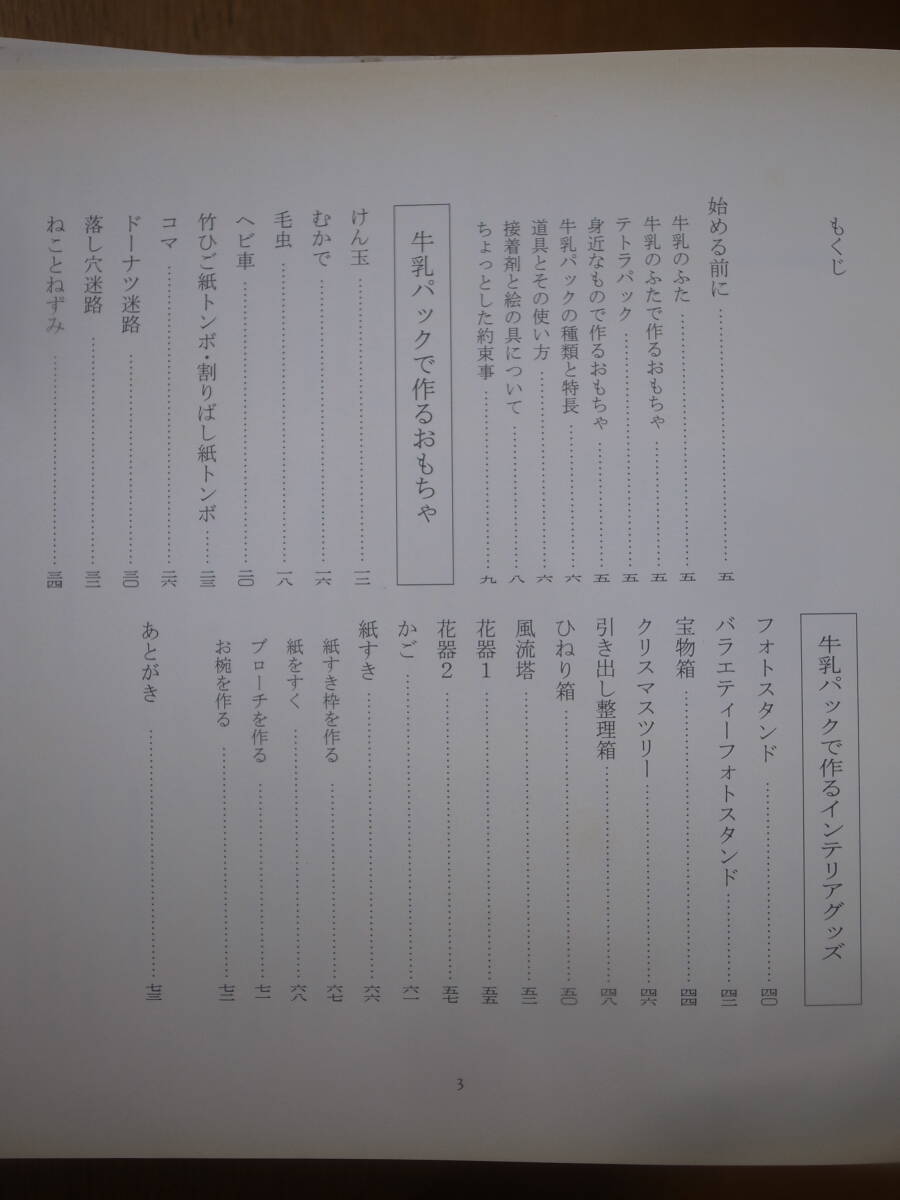 もくじ
始める前に……………………五
牛乳のふた……………………五
牛乳のふたで作るおもちゃ…………五
テトラパック……………………五
身近なもので作るおもちゃ…………五
牛乳パックの種類と特長…………六
道具とその使い方………………六
接着剤と絵の具について…………八
ちょっとした約束事………………九
牛乳パックで作るおもちゃ
けん玉……………………一二
むかで……………………一六
毛虫……………………一八
ヘビ車……………………二〇
竹ひご紙トンボ・割りばし紙トンボ……二三
コマ……………………二六
ドーナツ迷路………………三〇
落し穴迷路………………三二
ねことねずみ………………三四
牛乳パックで作るインテリアグッズ
フォトスタンド………………四〇
バラエティーフォトスタンド………四二
宝物箱……………………四四
クリスマスツリー………………四六
引き出し整理箱………………四八
ひねり箱……………………五〇
風流塔……………………五二
花器1……………………五五
花器2……………………五七
かご……………………六一
紙すき……………………六六
紙すき枠を作る………………六七
紙をすく……………………六八
ブローチを作る………………七一
お椀を作る………………七二
あとがき……………………七三
3